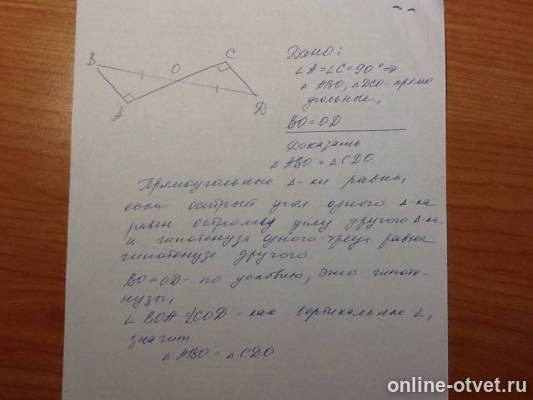 B
O
C
A
D
Дано:
∠A=∠C=90°⇒
△ABO, △DCO-прямо
угольные,
BO=OD
Доказать
△ABO=△CDO
Прямоугольные △-ки равны,
если острый угол одного △-ка
равен острому углу другого △-ка
и гипотенуза одного треуг. равна
гипотенузе другого.
BO=OD- по условию, это гипоте-
нузы,
∠BOA=∠COD - как вертикальные ∠,
значит
△ABO=△CDO
online-otvet.ru